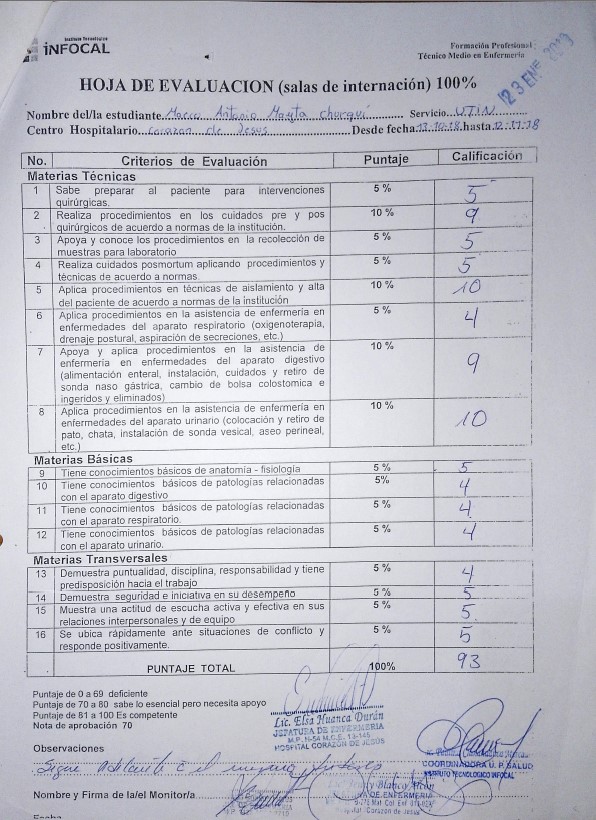 Instituto Tecnológico
iNFOCAL
Formación Profesional
Técnico Medio en Enfermería
23 ENE 2019
HOJA DE EVALUACION (salas de internación) 100%
Nombre del/la estudiante Marco Antonio Mayta Churqui Servicio UTIN
Centro Hospitalario Corazon de Jesus Desde fecha 17.10.18 hasta 12.11.18
No. Criterios de Evaluación Puntaje Calificación
Materias Técnicas
1 Sabe preparar al paciente para intervenciones 5 % 5
quirúrgicas.
2 Realiza procedimientos en los cuidados pre y pos 10 % 9
quirúrgicos de acuerdo a normas de la institución.
3 Apoya y conoce los procedimientos en la recolección de 5 % 5
muestras para laboratorio
4 Realiza cuidados posmortum aplicando procedimientos y 5 % 5
técnicas de acuerdo a normas.
5 Aplica procedimientos en técnicas de aislamiento y alta 10 % 10
del paciente de acuerdo a normas de la institución
6 Aplica procedimientos en la asistencia de enfermería en 5 % 4
enfermedades del aparato respiratorio (oxigenoterapia,
drenaje postural, aspiración de secreciones, etc.)
7 Apoya y aplica procedimientos en la asistencia de 10 % 9
enfermería en enfermedades del aparato digestivo
(alimentación enteral, instalación, cuidados y retiro de
sonda naso gástrica, cambio de bolsa colostomica e
ingeridos y eliminados)
8 Aplica procedimientos en la asistencia de enfermería en 10 % 10
enfermedades del aparato urinario (colocación y retiro de
pato, chata, instalación de sonda vesical, aseo perineal,
etc.)
Materias Básicas
9 Tiene conocimientos básicos de anatomía - fisiología 5 % 5
10 Tiene conocimientos básicos de patologías relacionadas 5% 4
con el aparato digestivo
11 Tiene conocimientos básicos de patologías relacionadas 5 % 4
con el aparato respiratorio.
12 Tiene conocimientos básicos de patologías relacionadas 5 % 4
con el aparato urinario.
Materias Transversales
13 Demuestra puntualidad, disciplina, responsabilidad y tiene 5 % 4
predisposición hacia el trabajo
14 Demuestra seguridad e iniciativa en su desempeño 5 % 5
15 Muestra una actitud de escucha activa y efectiva en sus 5 % 5
relaciones interpersonales y de equipo
16 Se ubica rápidamente ante situaciones de conflicto y 5 % 5
responde positivamente.
PUNTAJE TOTAL 100% 93
Puntaje de 0 a 69 deficiente
Puntaje de 70 a 80 sabe lo esencial pero necesita apoyo
Puntaje de 81 a 100 Es competente
Nota de aprobación 70
Lic. Elsa Huanca Durán
JEFATURA DE ENFERMERIA
M.P. H-54 M.C.E. 13-145
HOSPITAL CORAZÓN DE JESÚS
COORDINADORA U.P. SALUD
INSTITUTO TECNOLOGICO INFOCAL
Observaciones
Sigue adelante
Nombre y Firma de la/el Monitor/a
Blanco
DE ENFERMERIA
Hospital "Corazon de Jesus"
Fecha